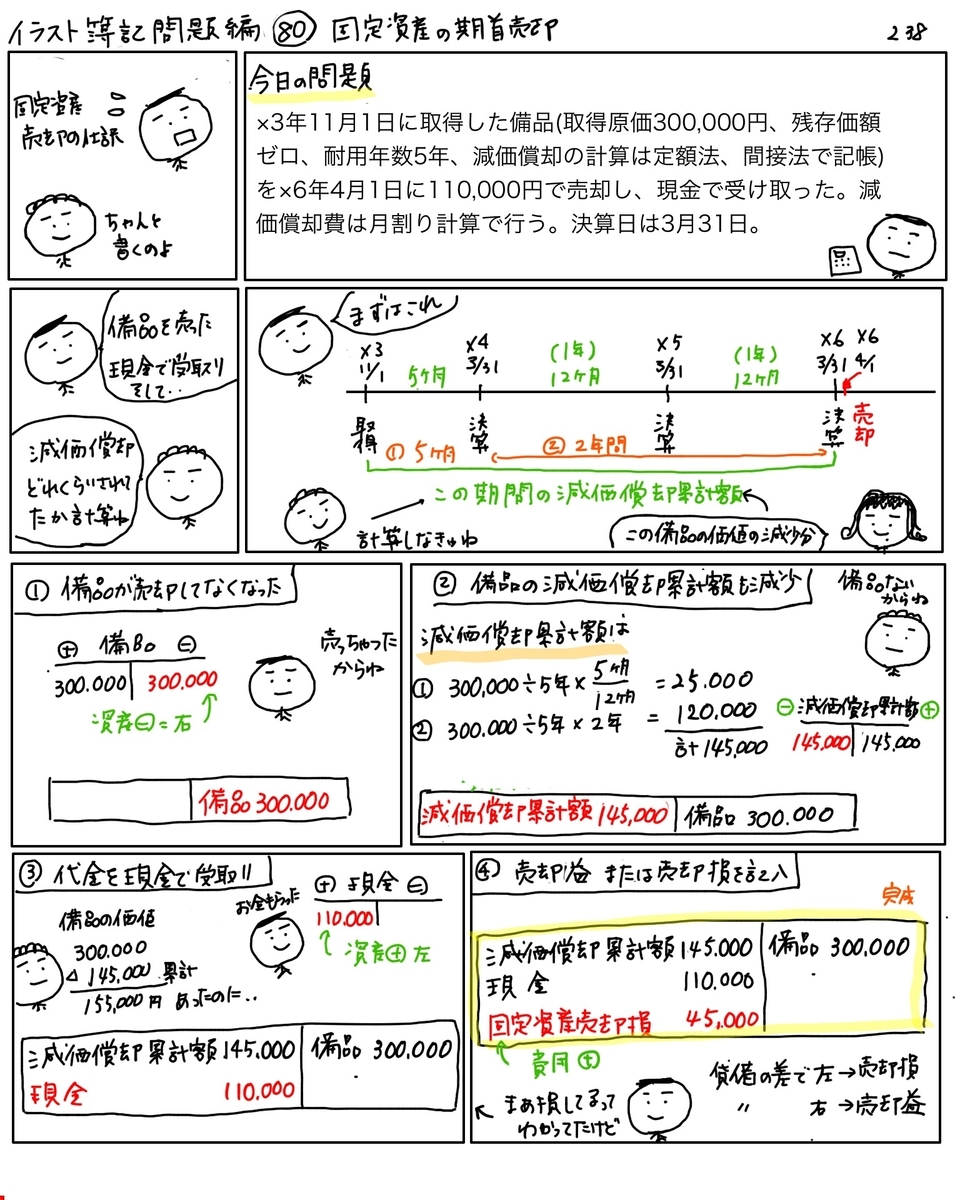 イラスト簿記問題編 80 固定資産の期首売却
238
固定資産
売却の仕訳
ちゃんと
書くのよ
今日の問題
×3年11月1日に取得した備品(取得原価300,000円、残存価額
ゼロ、耐用年数5年、減価償却の計算は定額法、間接法で記帳)
を×6年4月1日に110,000円で売却し、現金で受け取った。減
価償却費は月割り計算で行う。決算日は3月31日。
備品を売った
現金で受取り
そして‥
減価償却
どれくらいされて
たか計算ね
まずはこれ
×3 11/1
5ヶ月
×4 3/31
(1年) 12ヶ月
×5 3/31
(1年) 12ヶ月
×6 3/31
×6 4/1
取得
① 5ヶ月
決算
② 2年間
決算
決算
売却
この期間の減価償却累計額
計算しなきゃね
この備品の価値の減少分
① 備品が売却してなくなった
⊕ 備品 ⊖
300.000 300.000
資産⊖=右
売っちゃった
からね
備品 300.000
② 備品の減価償却累計額も減少
備品ない
からね
減価償却累計額は
① 300,000÷5年×5ヶ月/12ヶ月 =25.000
② 300.000÷5年×2年 = 120.000
計145,000
⊖ 減価償却累計額 ⊕
145.000 145,000
減価償却累計額 145,000 備品 300.000
③ 代金を現金で受取り
備品の価値
300.000
△ 145,000 累計
155,000円 あったのに‥
お金もらった
⊕ 現金 ⊖
110.000
資産⊕左
減価償却累計額 145.000 備品 300.000
現金 110.000
④ 売却益または売却損を記入
完成
減価償却累計額 145.000 備品 300,000
現金 110.000
固定資産売却損 45,000
費用⊕
まあ損してるって
わかってたけど
貸借の差で左→売却損
〃 右→売却益